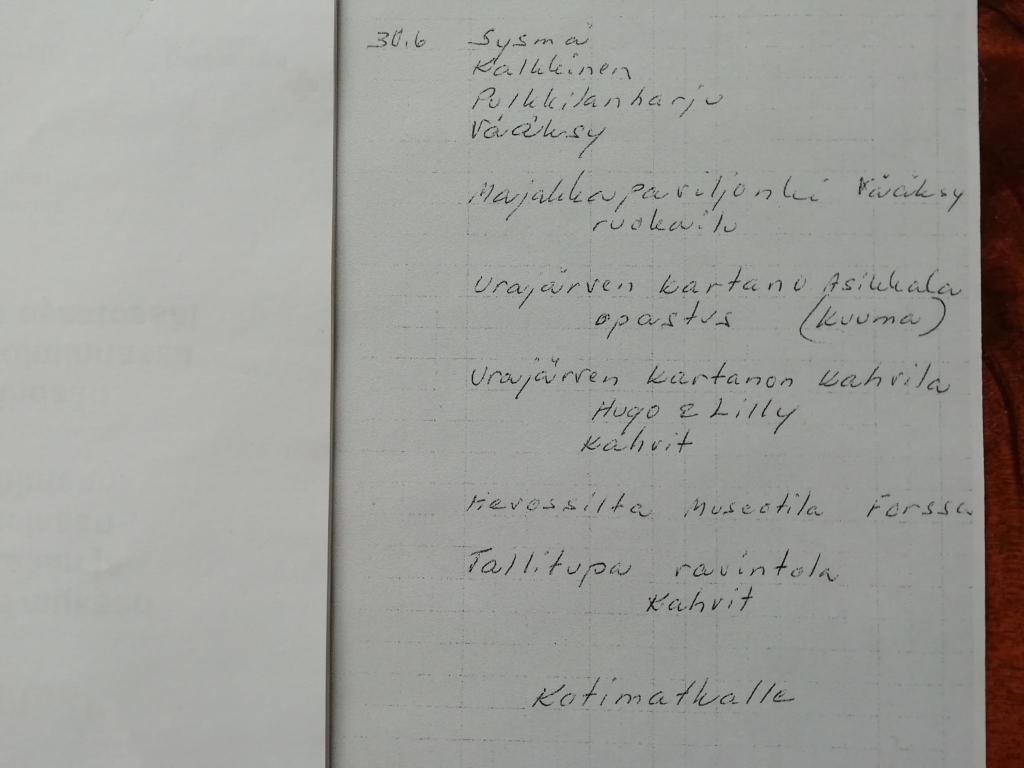 30.6 Sysmä
Kalkkinen
Pulkkilanharju
Vääksy
Majakkapaviljonki Vääksy
ruokailu
Urajärven kartano Asikkala
opastus (kuuma)
Urajärven kartanon kahvila
Hugo & Lilly
kahvit
Hevossilta Museotila Forssa
Tallitupa ravintola
kahvit
Kotimatkalle